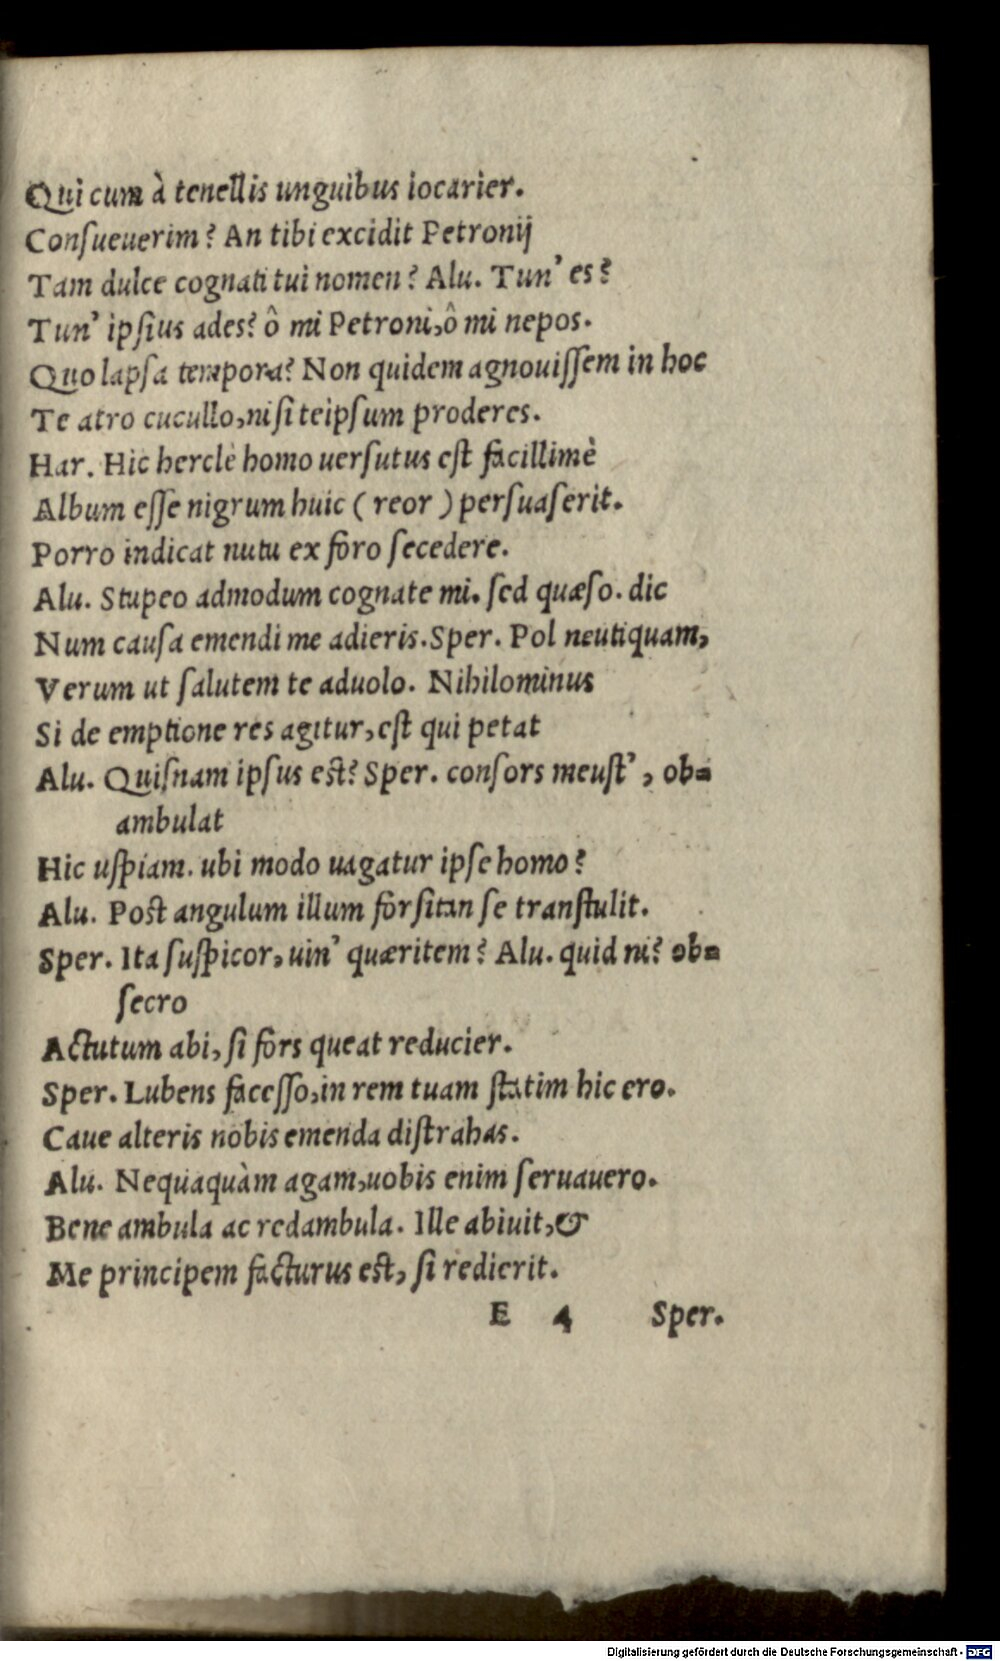 Qui cum à tenellis unguibus iocarier.
Conſueuerim? An tibi excidit Petronij
Tam dulce cognati tui nomen? Alu. Tun' es?
Tun' ipſius ades? ô mi Petroni, ô mi nepos.
Quo lapſa tempora? Non quidem agnouiſſem in hoc
Te atro cucullo, niſi teipſum proderes.
Har. Hic herclè homo uerſutus eſt facillimè
Album eſſe nigrum huic ( reor ) perſuaſerit.
Porro indicat nutu ex foro ſecedere.
Alu. Stupeo admodum cognate mi. ſed quæſo. dic
Num cauſa emendi me adieris. Sper. Pol neutiquam,
Verum ut ſalutem te aduolo. Nihilominus
Si de emptione res agitur, eſt qui petat
Alu. Quiſnam ipſus eſt? Sper. conſors meuſt', ob=
ambulat
Hic uſpiam. ubi modo uagatur ipſe homo?
Alu. Poſt angulum illum forſitan ſe tranſtulit.
Sper. Ita ſuſpicor, uin' quæritem? Alu. quid ni? ob=
ſecro
Actutum abi, ſi fors queat reducier.
Sper. Lubens faceſſo, in rem tuam ſtatim hic ero.
Caue alteris nobis emenda diſtrahas.
Alu. Nequaquàm agam, uobis enim ſeruauero.
Bene ambula ac redambula. Ille abiuit, &
Me principem facturus eſt, ſi redierit.
E 4 Sper.
Digitalisierung gefördert durch die Deutsche Forschungsgemeinschaft - DFG